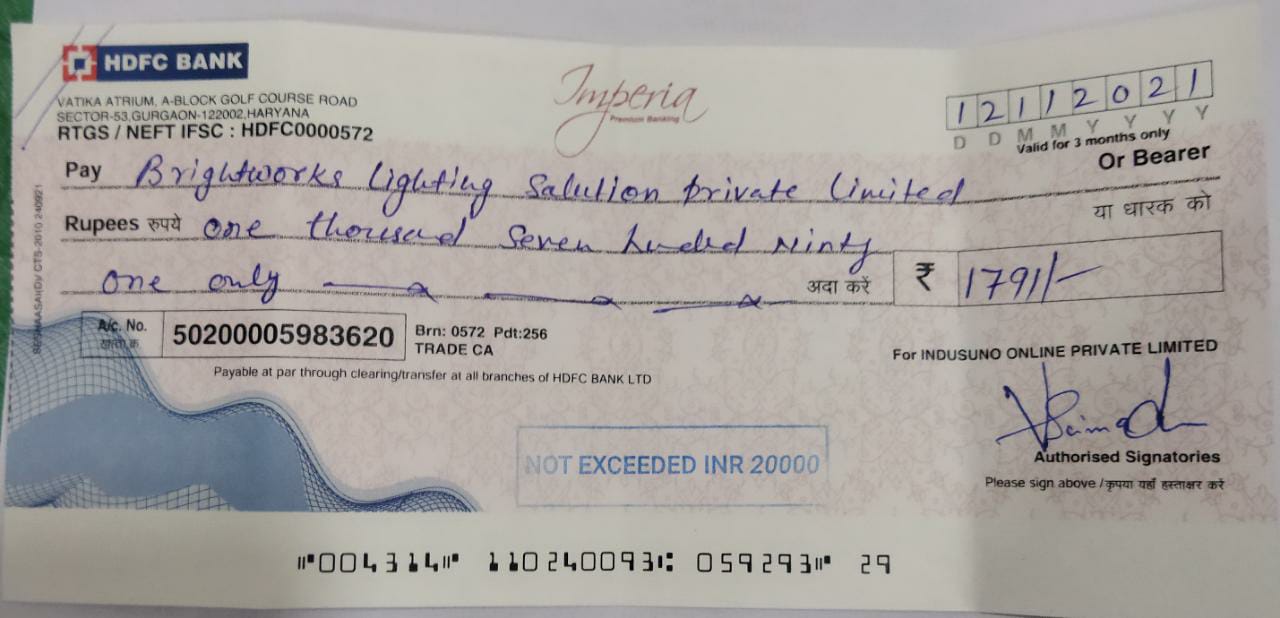 HDFC BANK
VATIKA ATRIUM, A-BLOCK GOLF COURSE ROAD
SECTOR-53,GURGAON-122002,HARYANA
RTGS / NEFT IFSC : HDFC0000572
Imperia
Premium Banking
12112021
D D M M Y Y Y Y
Valid for 3 months only
Pay Brightworks Lighting Salution private Limited Or Bearer
या धारक को
Rupees रुपये one thousad seven hunded Ninty
one only अदा करें ₹ 1791/-
A/c. No.
खाता क्र.
50200005983620
Brn: 0572 Pdt:256
TRADE CA
Payable at par through clearing/transfer at all branches of HDFC BANK LTD
For INDUSUNO ONLINE PRIVATE LIMITED
NOT EXCEEDED INR 20000
Authorised Signatories
Please sign above / कृपया यहाँ हस्ताक्षर करें
⑈004314⑈ 110240093⑆ 059293⑈ 29